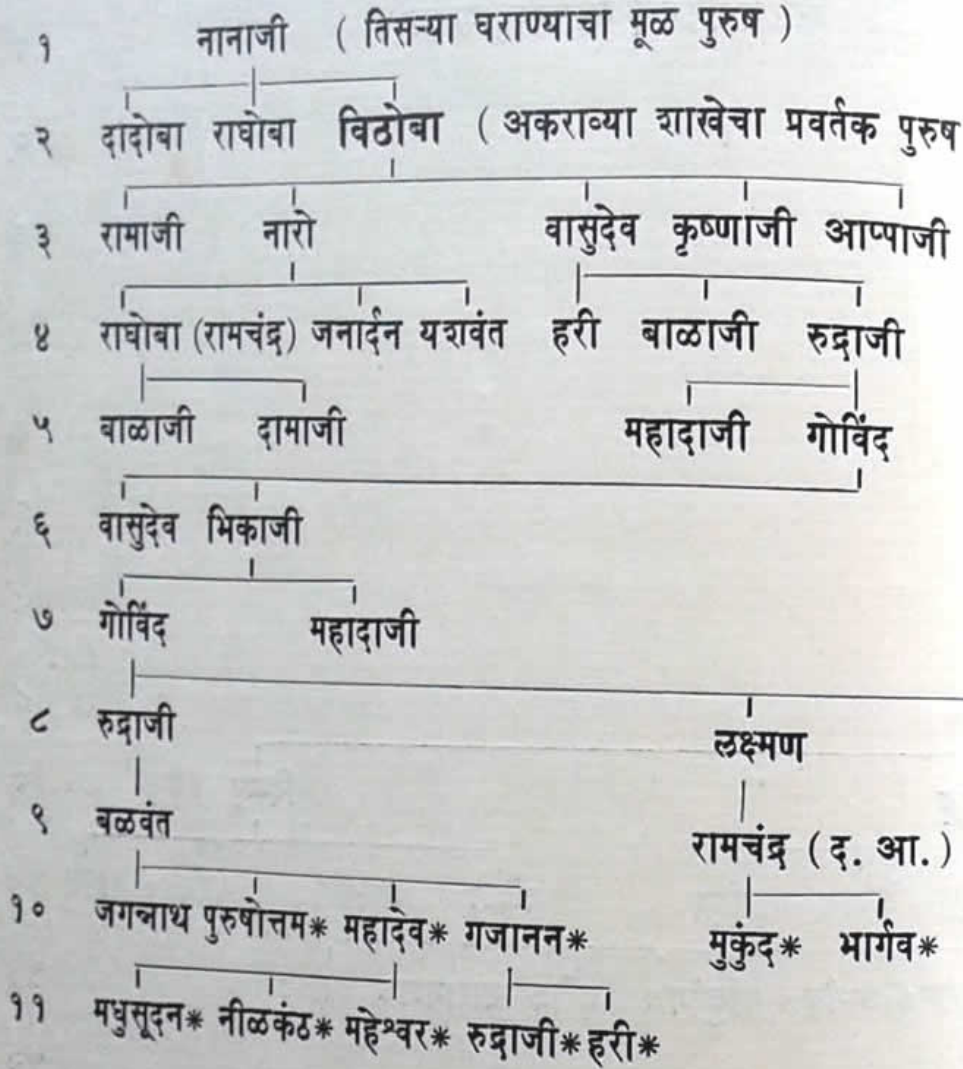 १ नानाजी ( तिसऱ्या घराण्याचा मूळ पुरुष )
२ दादोबा राघोबा विठोबा ( अकराव्या शाखेचा प्रवर्तक पुरुष
३ रामाजी नारो वासुदेव कृष्णाजी आप्पाजी
४ राघोबा (रामचंद्र) जनार्दन यशवंत हरी बाळाजी रुद्राजी
५ बाळाजी दामाजी महादाजी गोविंद
६ वासुदेव भिकाजी
७ गोविंद महादाजी
८ रुद्राजी लक्ष्मण
९ बळवंत रामचंद्र ( द. आ. )
१० जगन्नाथ पुरुषोत्तम* महादेव* गजानन* मुकुंद* भार्गव*
११ मधुसूदन* नीळकंठ* महेश्वर* रुद्राजी* हरी*